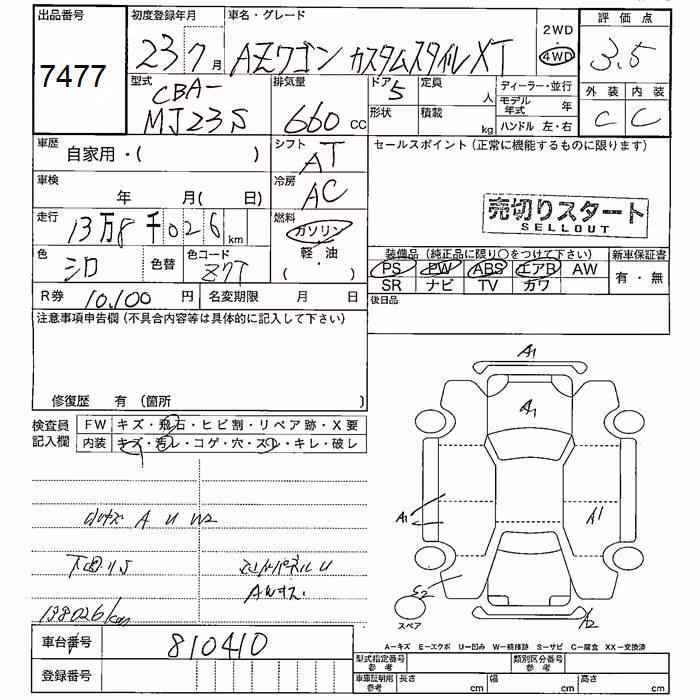 出品番号
7477
初度登録年月
23 7 月
車名・グレード
AZワゴン カスタムスタイル XT
2WD
4WD
評価点
3.5
外装 内装
C C
型式
CBA-
MJ23S
排気量
660 cc
ドア
5
定員
人
形状
積載
kg
ディーラー・並行
モデル年式 年
ハンドル 左・右
車歴
自家用・( )
シフト
AT
車検
年 月( 日)
冷房
AC
走行
13万8千026 km
燃料
ガソリン
軽・油
( )
色
シロ
色替
色コード
Z7T
R券 10,100 円
名変期限 月 日
セールスポイント (正常に機能するものに限ります)
売切りスタート
SELLOUT
装備品 (純正品に限り○をつけて下さい)
新車保証書
PS PW ABS エアB AW
SR ナビ TV カワ
有・無
後日品
注意事項申告欄 (不具合内容等は具体的に記入して下さい)
修復歴 有 (箇所 )
検査員
記入欄
FW キズ・飛石・ヒビ割・リペア跡・X要
内装 キズ・汚レ・コゲ・穴・スレ・キレ・破レ
A U W2
下回りS
U
138026km
A1
A1
A1
A1
E2
A2
スペア
A−キズ E−エクボ U−凹み W−補修跡 S−サビ C−腐食 XX−交換済
車台番号 810410
登録番号
型式指定番号
参考
類別区分番号
参考
車庫証明用
参考
長さ cm
幅 cm
高さ cm